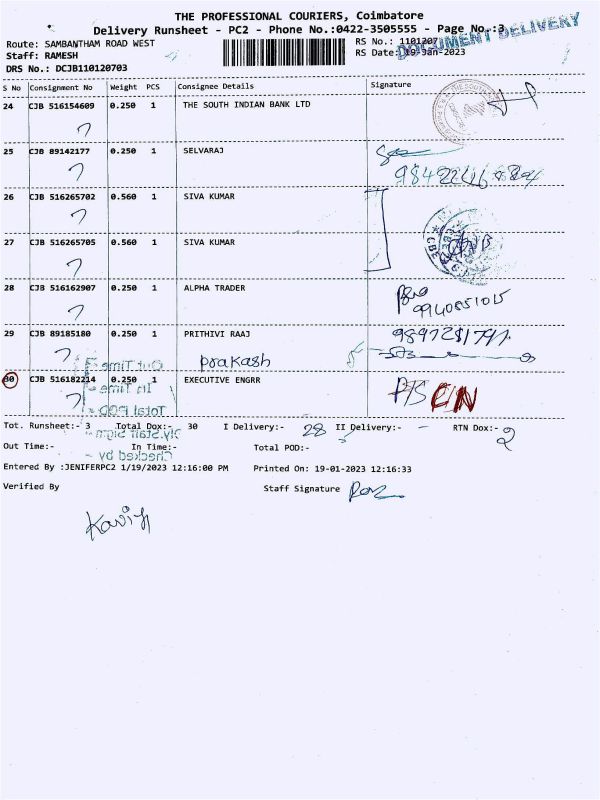 THE PROFESSIONAL COURIERS, Coimbatore
Delivery Runsheet - PC2 - Phone No.:0422-3505555 - Page No.:3
DOCUMENT DELIVERY
Route: SAMBANTHAM ROAD WEST RS No.: 1101207
Staff: RAMESH RS Date: 19-Jan-2023
DRS No.: DCJB110120703
S No Consignment No Weight PCS Consignee Details Signature
24 CJB 516154609 0.250 1 THE SOUTH INDIAN BANK LTD
25 CJB 89142177 0.250 1 SELVARAJ
26 CJB 516265702 0.560 1 SIVA KUMAR
27 CJB 516265705 0.560 1 SIVA KUMAR
28 CJB 516162907 0.250 1 ALPHA TRADER
9940851015
29 CJB 89185180 0.250 1 PRITHIVI RAAJ
prakash
Out Time :-
30 CJB 516182214 0.250 1 EXECUTIVE ENGRR
In Time :-
Total POD :-
Tot. Runsheet:- 3 Total Dox:- 30 I Delivery:- 28 II Delivery:- - RTN Dox:- 2
Out Time:- In Time:- Total POD:-
Checked by -
Entered By :JENIFERPC2 1/19/2023 12:16:00 PM Printed On: 19-01-2023 12:16:33
Verified By Staff Signature